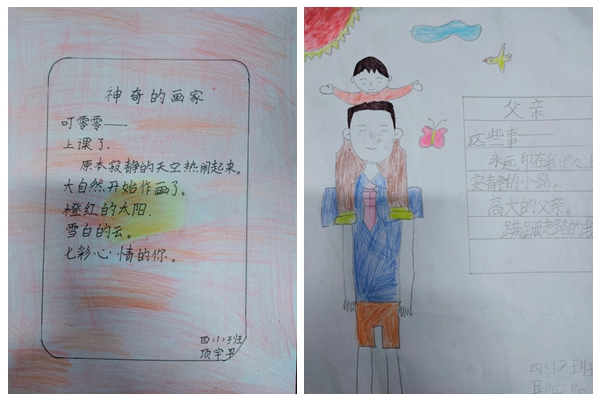 神奇的画家
叮零零——
上课了,
原本寂静的天空热闹起来。
大自然开始作画了。
橙红的太阳.
雪白的云。
七彩心情的你。
四(1)班
项宇
父亲
这些事——
永远印在我的心上
安静的小路。
高大的父亲。
蹒跚走路的
四(1)班